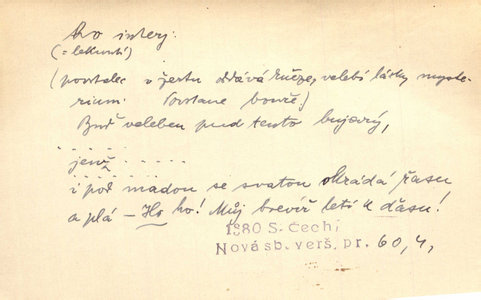 ho interj.
(= leknutí)
(poustevec v žertu oddává kněze, velebí lásky myste-
rium. Povstane bouře.)
Buď veleben pud tento bujarý,
. . . . . . . . . .
jenž . . . . .
i pod madou se svatou okrádá řasu
a plá – Ho ho! Můj brevíř letí k ďasu!
1880 S. Čech,
Nová sb. verš. pr. 60, 4,